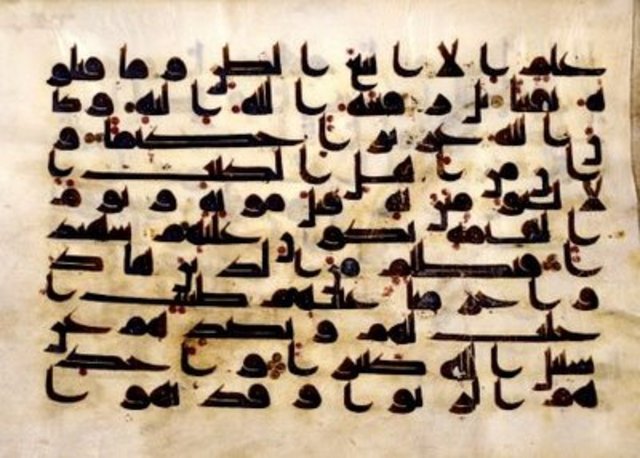 علم الا اتباع الظن وما قتلو
ه يقينا بل رفعه الله اليه وكا
ن الله عزيزا حكيما و
ان من اهل الكتب ا
لا ليومنن به قبل موته ويوم
القيمة يكون عليهم شهيد
ا فبظلم من الذين هاد
وا حرمنا عليهم طيبت ا
حلت لهم وبصدهم عن
سبيل الله كثيرا واخذ
هم الربوا وقد نهوا